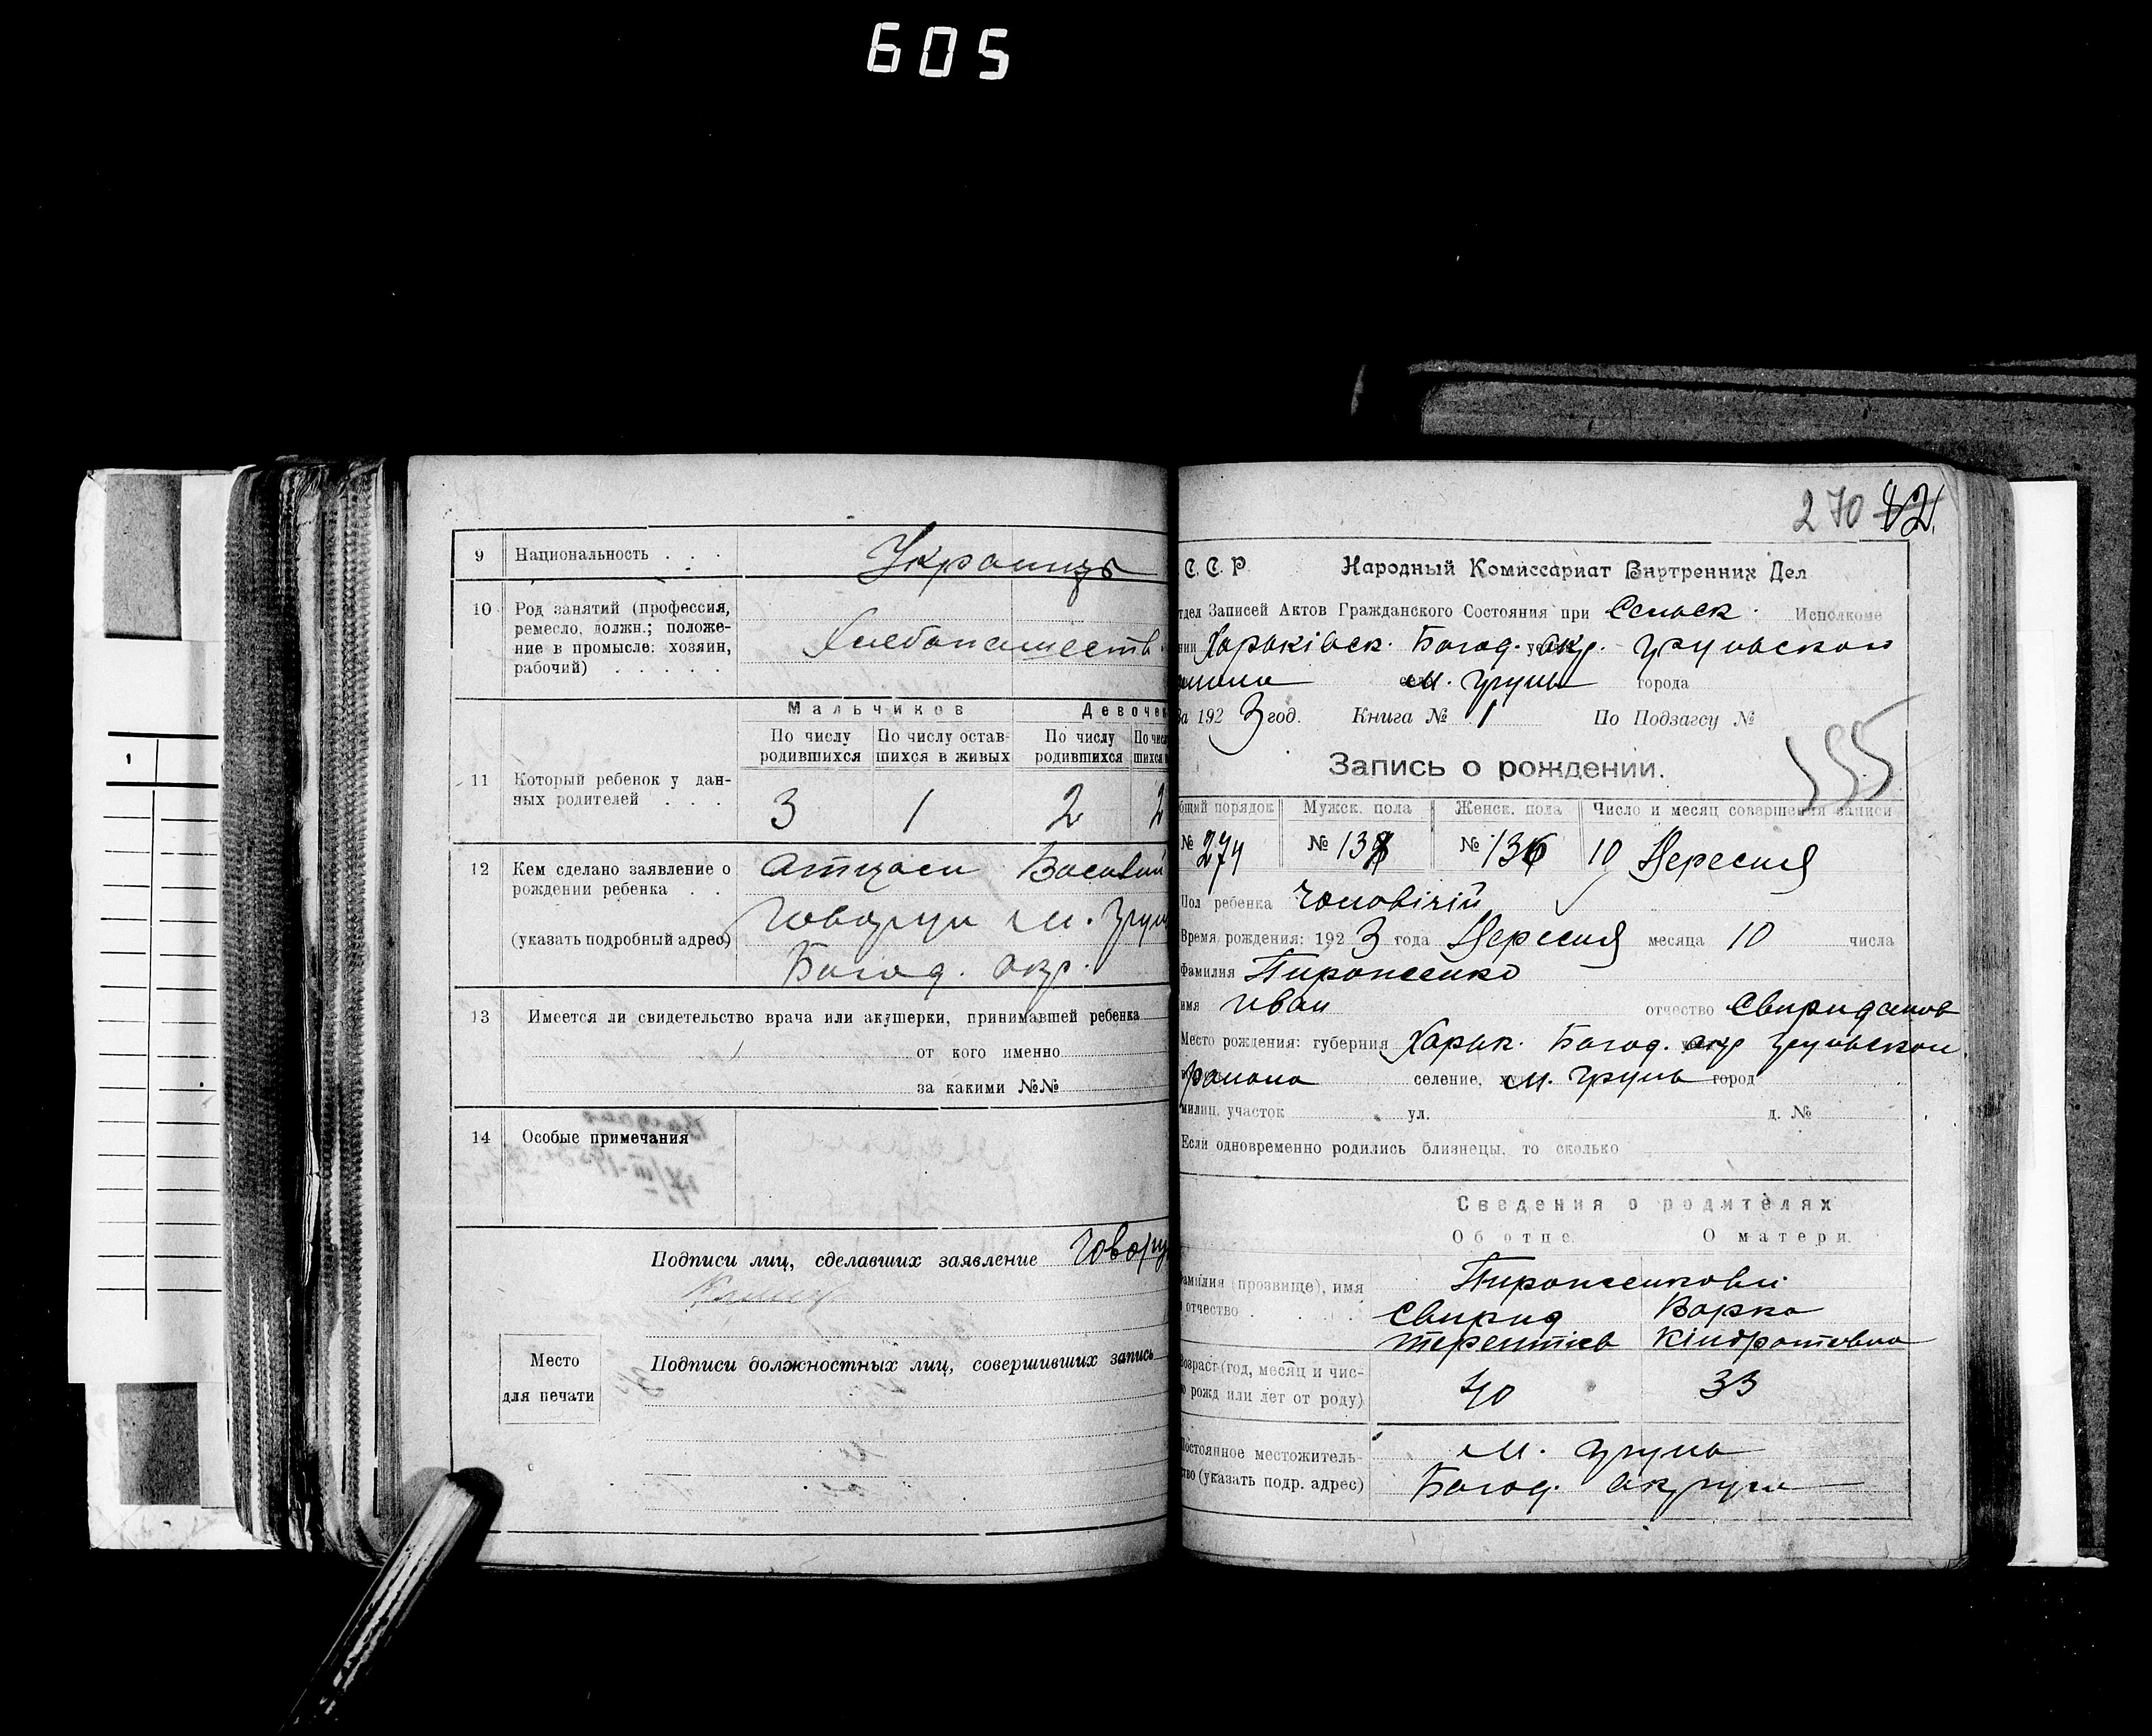 605
9 Национальность . . . Украинцъ
10 Род занятий (профессия,
ремесло, должн.; положе-
ние в промысле: хозяин,
рабочий) . . . . .
Хлебопашеств
Мальчиков Девочек
По числу родившихся По числу остав-шихся в живых По числу родившихся По числ шихся в
11 Который ребенок у дан-
ных родителей . . .
3 1 2 2
12 Кем сделано заявление о
рождении ребенка . .
(указать подробный адрес)
Отцом Василий
Говорун м. Грун
Богод. окр.
13 Имеется ли свидетельство врача или акушерки, принимавшей ребенка
от кого именно
за какими №№
14 Особые примечания
Подписи лиц, сделавших заявление Говору
Место
для печати
Подписи должностных лиц, совершивших запись
270 82
С. С. Р. Народный Комиссариат Внутренних Дел
тдел Записей Актов Гражданского Состояния при Сельск. Исполкоме
нии Харьківск. Богод. окр. Груньского
м. Грунь города
За 1923 год. Книга № 1 По Подзагсу №
155
Запись о рождении.
бщий порядок Мужск. пола Женск. пола Число и месяц совершения записи
№ 274 № 138 № 136 10 Вересня
Пол ребенка Чоловічий
Время рождения: 1923 года Вересня месяца 10 числа
Фамилия Пироженко
имя Иван отчество Свиридонов
Место рождения: губерния Харьк. Богод. окр Груньской
района селение, м. Грунь город
милиц. участок ул. д. №
Если одновременно родились близнецы, то сколько
Сведения о родителях
Об отце. О матери.
амилия (прозвище), имя
отчество . . . .
Пироженкови
Свирид Варка
Терентіев Кіндратовна
Возраст (год, месяц и чис-
о рожд или лет от роду)
40 33
Постоянное местожитель-
тво (указать подр. адрес)
м. Грунь
Богод. округи